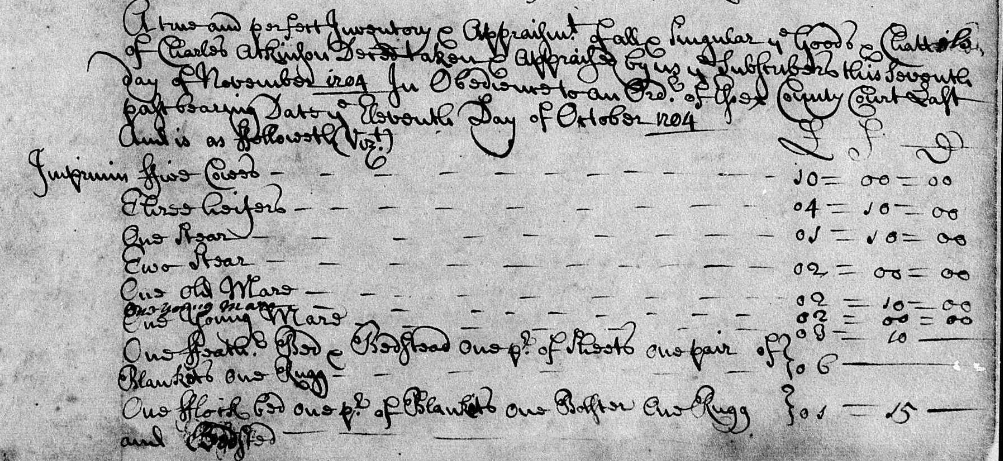 A true and perfect Inventory & Appraismt. of all & Singular ye Goods & Chattels
of Charles Atkinson Deced taken & Appraised by us ye Subscribers this Seventh
day of November 1704 In Obedience to an Ordr. of the County Court Last
past bearing Date ye Eleventh Day of October 1704
And is as ffolloweth (Vizt.)
£ S D
Imprimis ffive Cowes - 10 = 00 = 00
Three heifers - 04 = 10 = 00
One Stear - 01 = 10 = 00
Two Stear - 02 = 00 = 00
One old Mare - 02 = 10 = 00
One young Mare 02 = 00 = 00
One Young Mare 03 = 10 -
One ffeathr. Bed & Bedstead one pr. of Sheets one pair of }
Blankets one Rugg = } 06 -
One fflock bed one pr. of Blankets one Bolster One Rugg } 01 = 15 -
and Bedsted